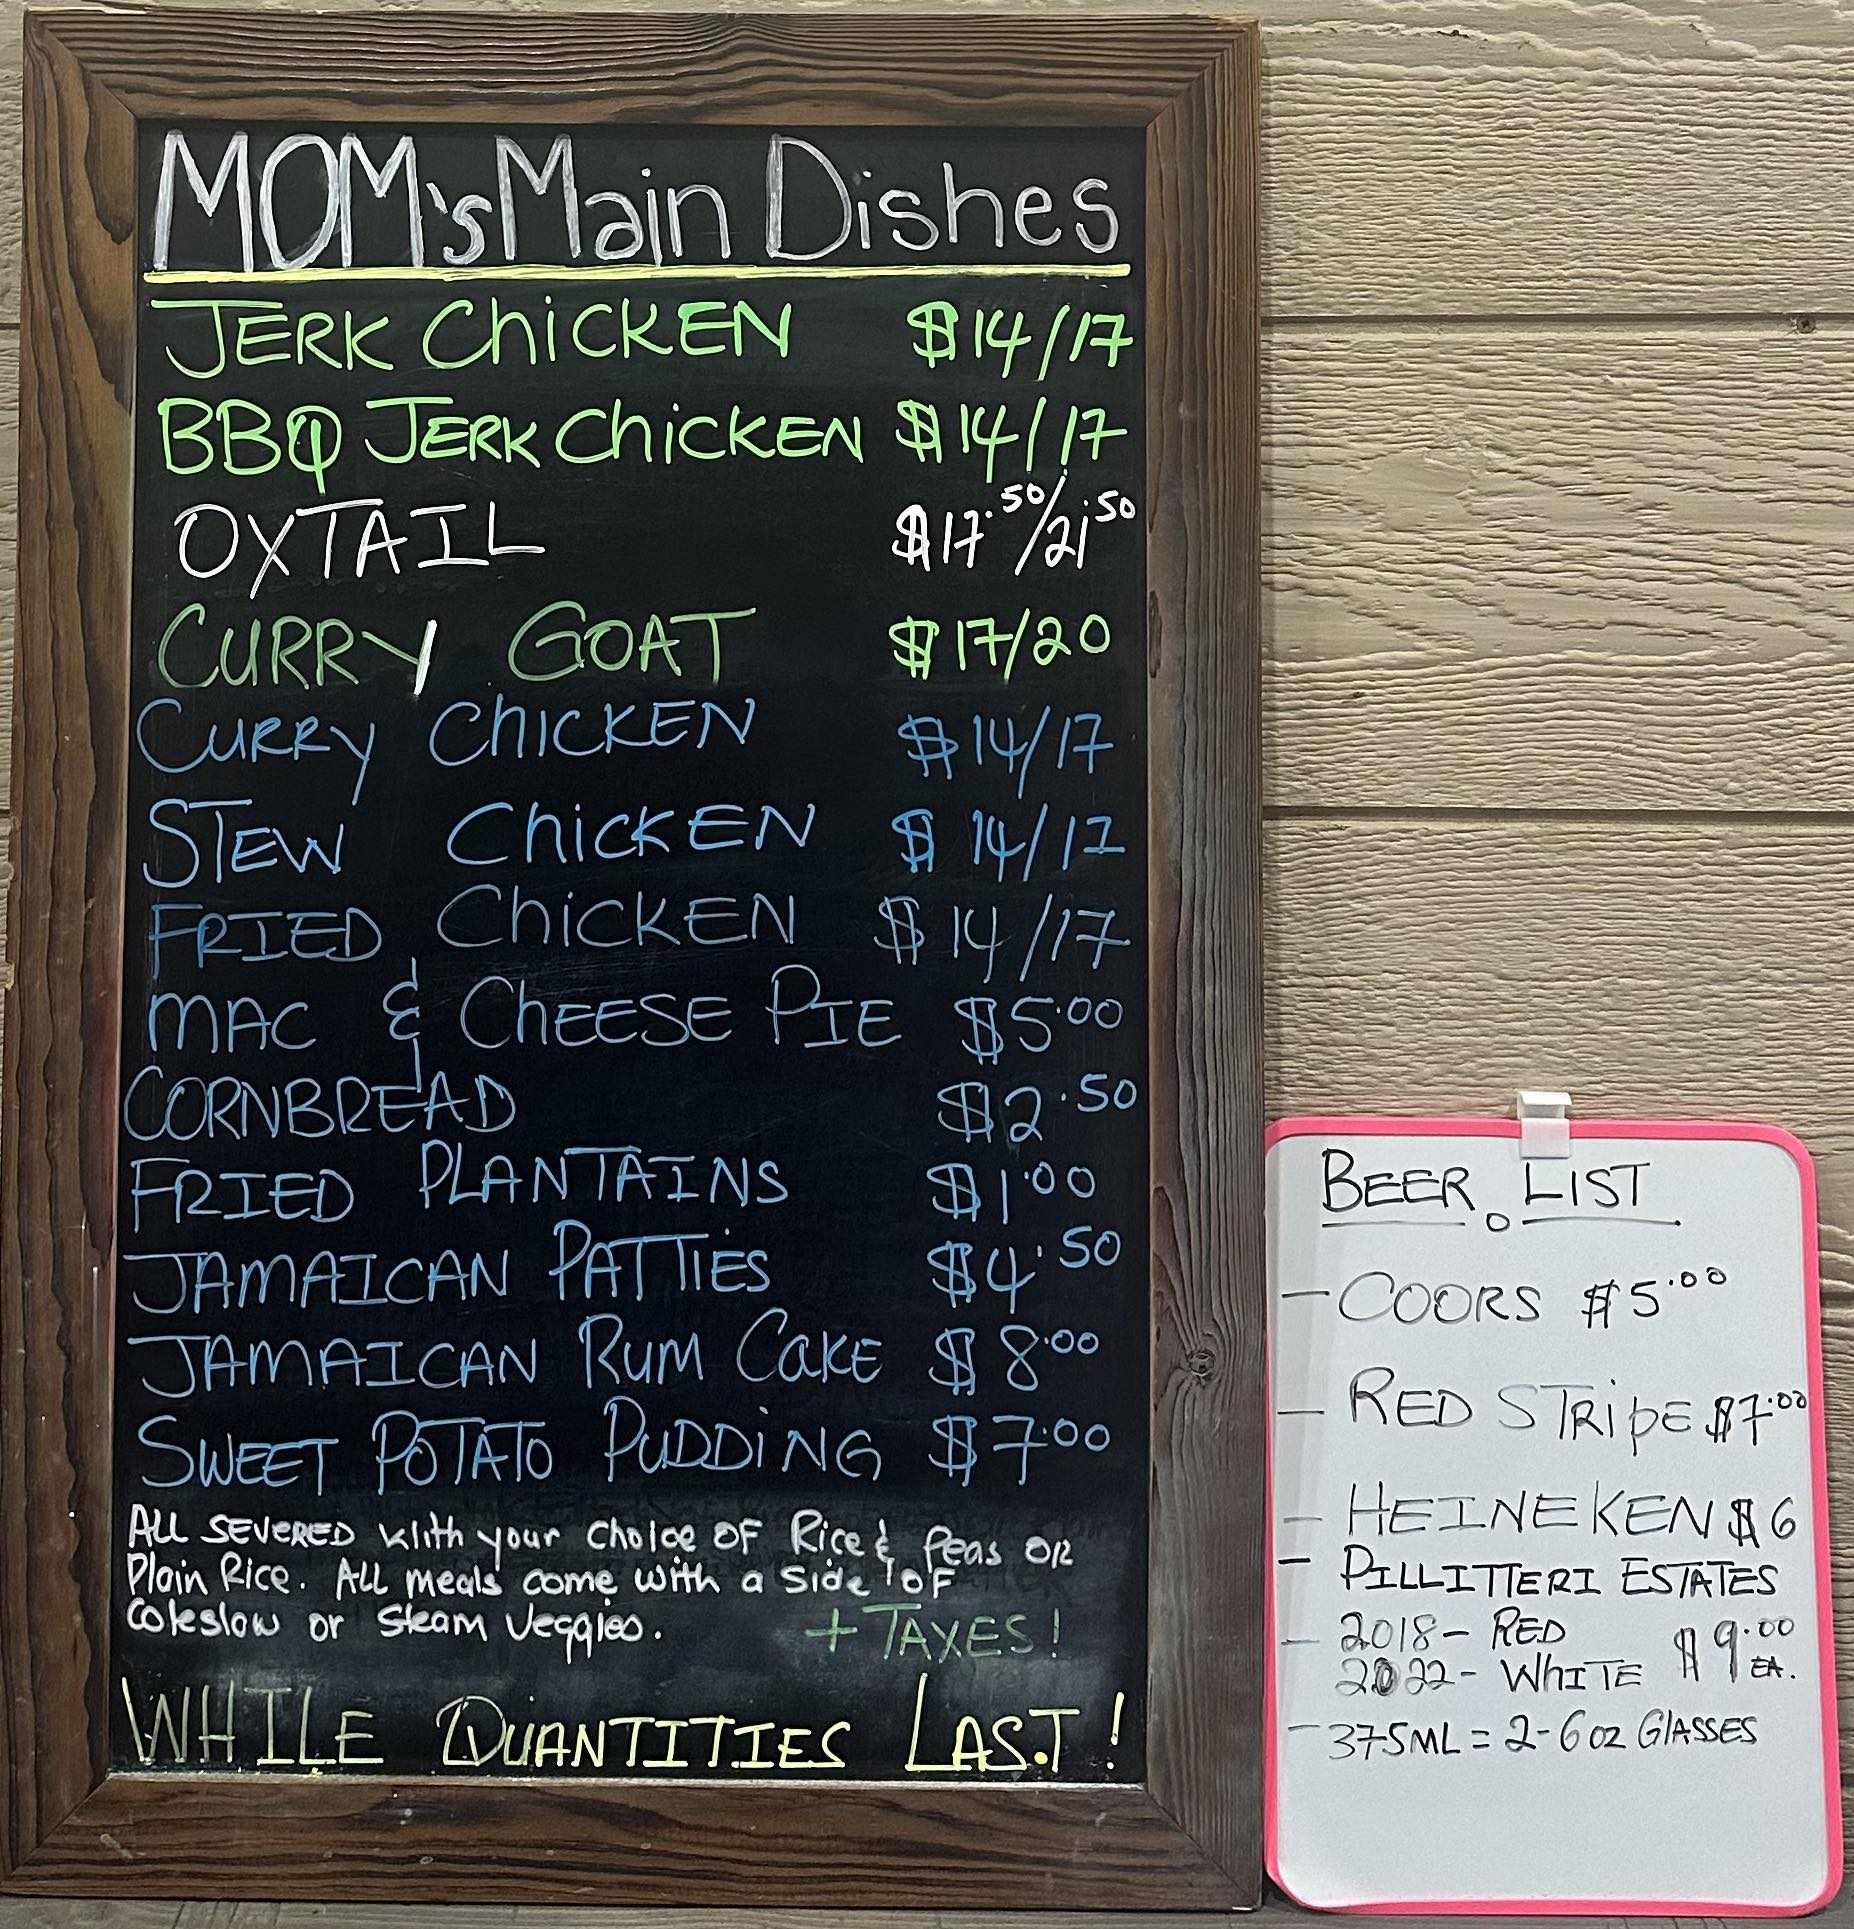 MOM's Main Dishes
JERK ChicKEN $14/17
BBQ JERK ChicKEN $14/17
OXTAIL $17.50/21.50
CURRY GOAT $17/20
CURRY ChICKEN $14/17
STEW ChicKEN $14/17
FRIED ChicKEN $14/17
MAC & ChEESE PIE $5.00
CORNBREAD $2.50
FRIED PLANTAINS $1.00
JAMAICAN PATTIES $4.50
JAMAICAN RUM CAKE $8.00
SWEET POTATO PUDDiNG $7.00
ALL SEVERED With your Choice OF Rice & Peas OR
Plain Rice. All meals come with a side OF
Coleslow or Steam Veggies.
+ TAXES!
WHILE QUANTITIES LAST!
BEER LIST
- COORS $5.00
- RED STRipE $7.00
- HEINEKEN $6
- PILLITTERI ESTATES
- 2018 - RED $9.00
2022 - WhITE EA.
- 375ML = 2-6oz GLASSES